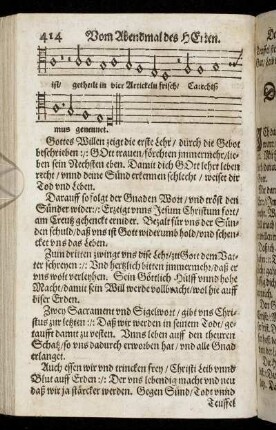 414 Vom Abendmal des HErren.
ist/ getheilt in vier Artickeln frisch/ Catechiß
mus genennet.
Gottes Willen zeigt die erste Lehr/ durch die Gebot
beschrieben :/: GOtt trauen/ förchten jmmermehr/ lie-
ben sein Nechsten eben. Damit dich GOtt lehrt leben
recht/ vnnd deine Sünd erkennen schlecht/ weiset dir
Tod vnd Leben.
Darauff so folgt der Gnaden Wort/ vnd tröst den
Sünder wider: Erzeigt vnns Jesum Christum fort/
am Creutz gehenckt ernider. Bezalt hat er vns der Sün-
den schuld/ daß vns ist Gott widerumb hold/ vnd schen-
cket vns das Leben.
Zum dritten zwingt vns diese Lehr/ zu Gott dem Vat-
ter schreyen :/: Vnd hertzlich bitten jmmermehr/ daß er
vns wöll verleyhen: Sein Göttlich Hülff vnnd hohe
Macht/ damit sein Will werde vollbracht/ wol hie auff
diser Erden.
Zwey Sacrament vnd Sigelwort/ gibt vns Chri-
stus zu letzten :/: Daß wir werden in seinem Todt/ ge-
taufft damit zu vesten. Vnns leben auff den theuren
Schatz/ so vns dadurch erworben hat/ vnd alle Gnad
erlanget.
Auch essen wir vnd trincken frey/ Christi Leib vnnd
Blut auff Erden :/: Der vns lebendig macht vnd neu
daß wir ja stärcker werden. Gegen Sünd/ Todt vnnd
Teuffel